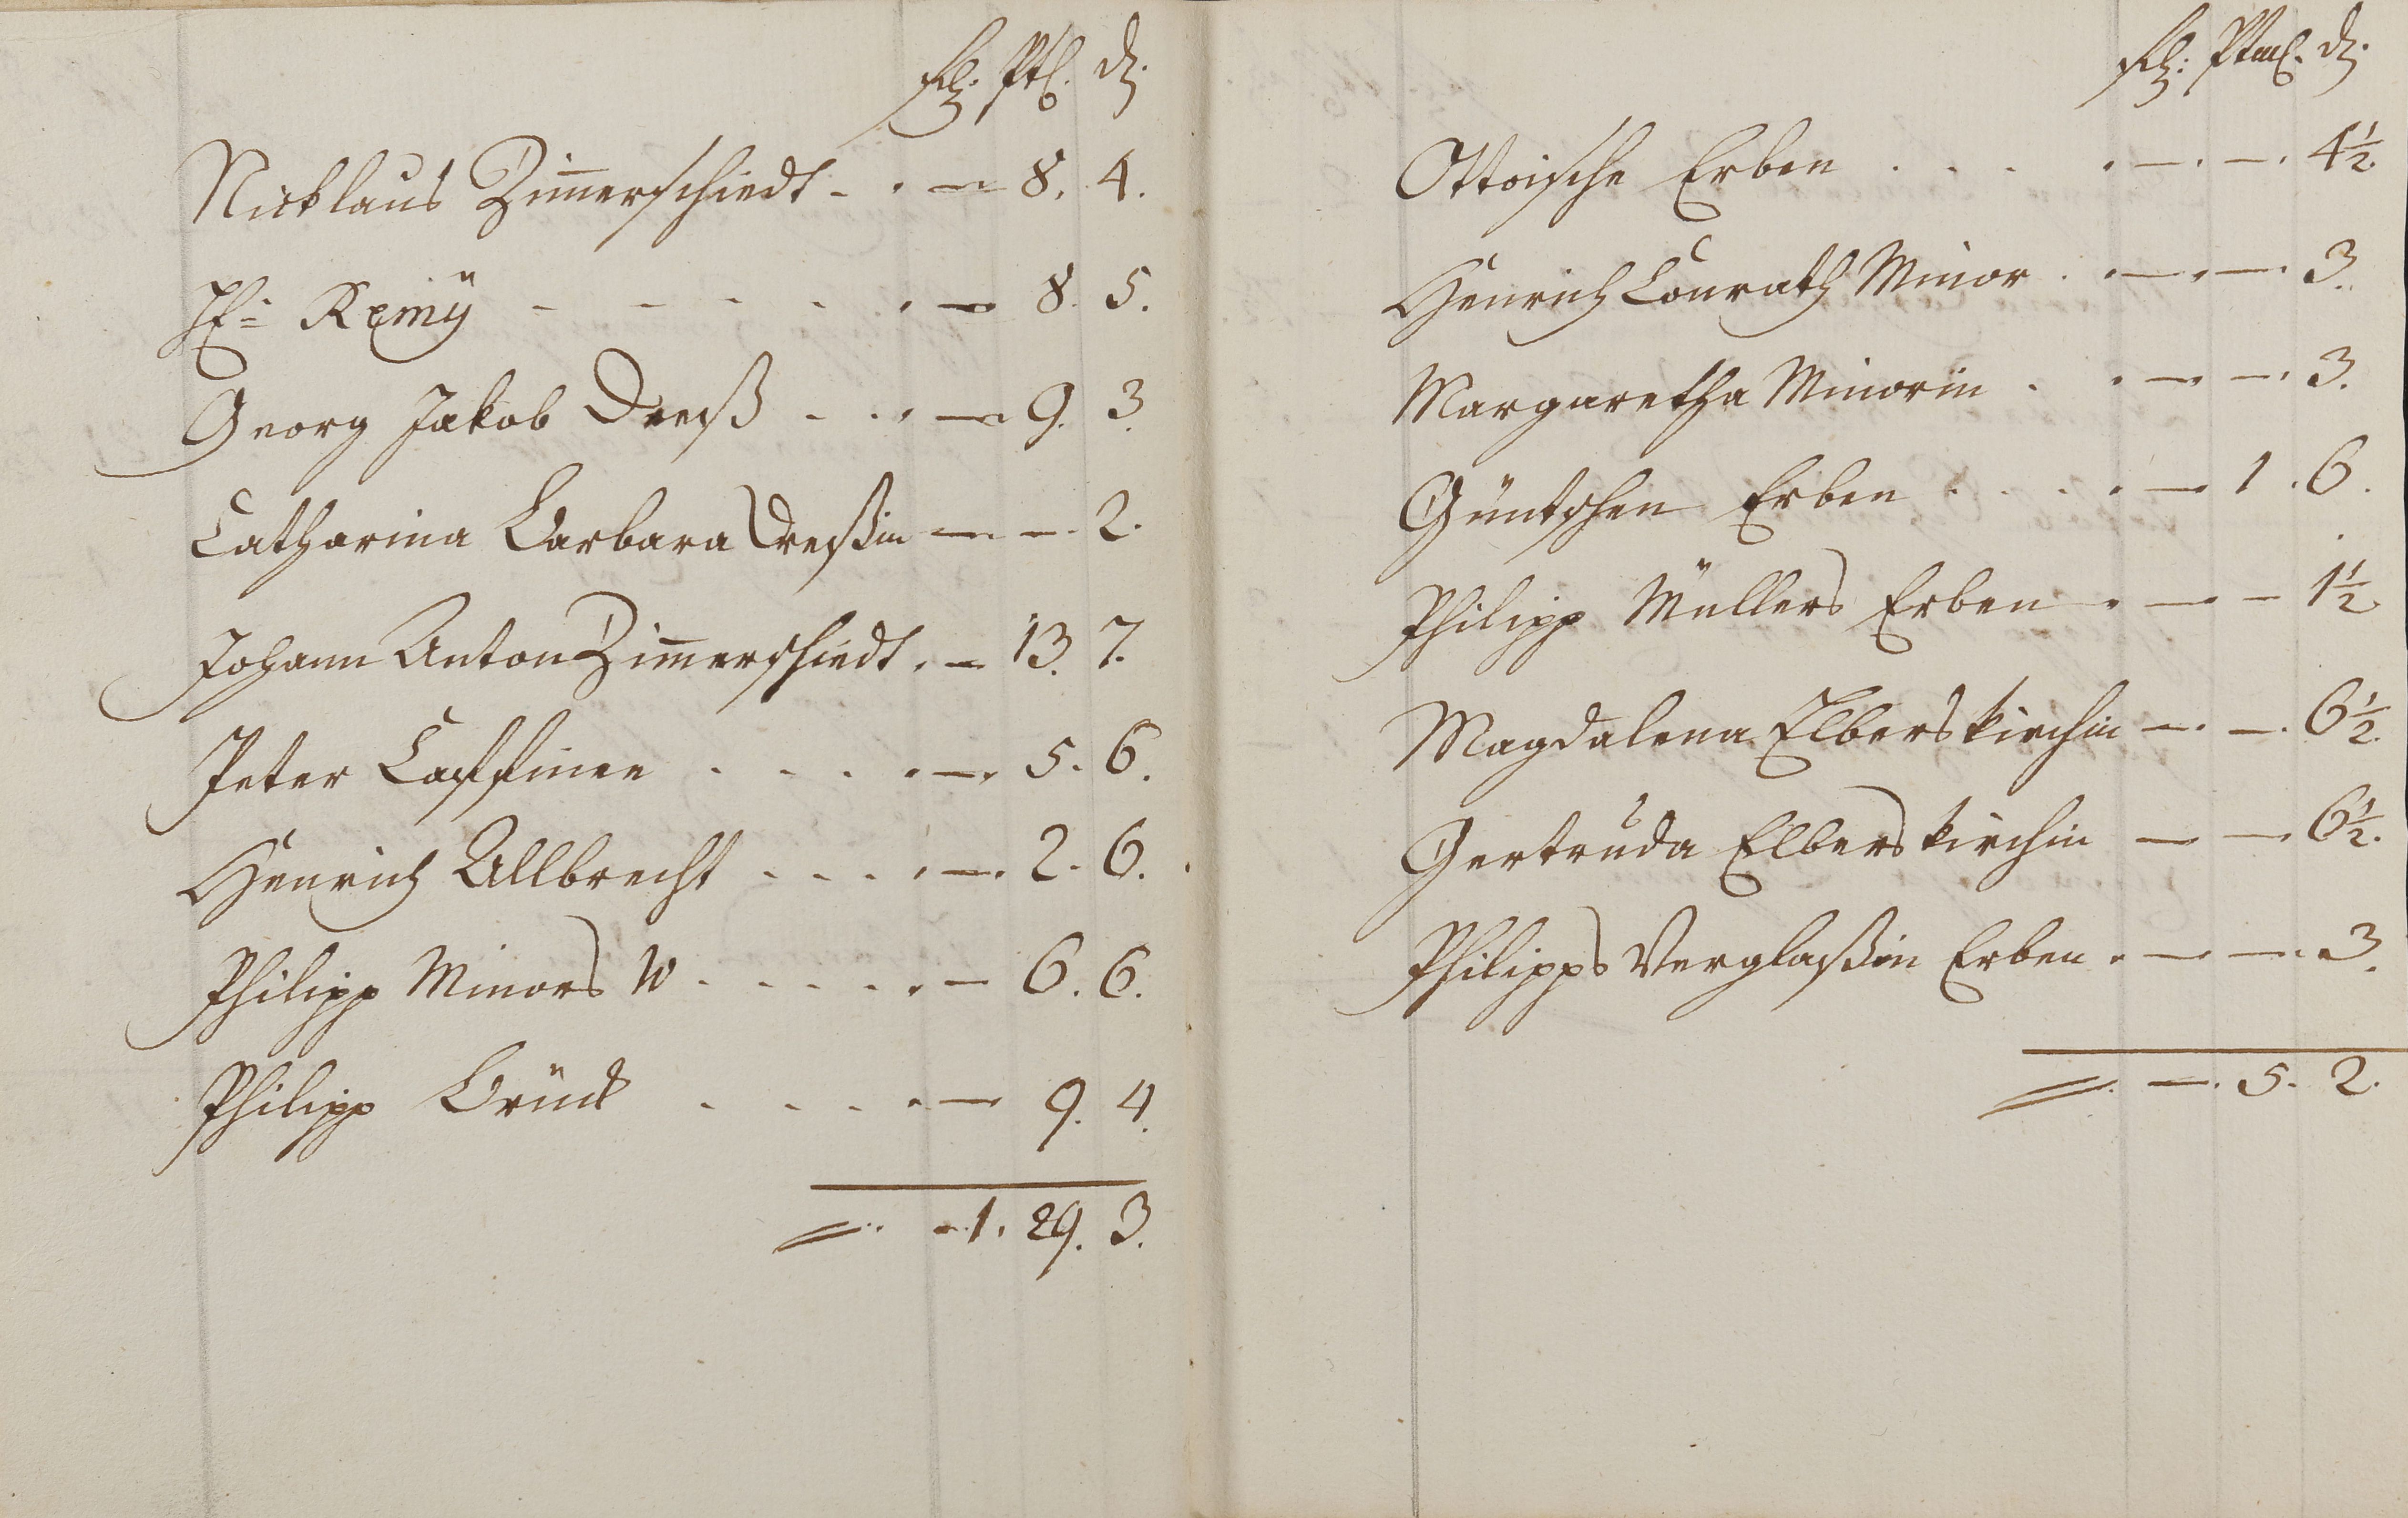 Rh: Pt. d.
Nicklaus Zimerschiedt - . — 8. 4.
H: Remÿ - - - - . — 8. 5.
Georg Jakob Dreß - . . — 9. 3.
Catharina Barbara Dreßin — — 2.
Johann Anton Zimerschiedt . — 13. 7.
Peter Cassinee . . . . — . 5. 6.
Henrich Ullbrecht . . . . — . 2. 6.
Philipp Minors W . . . . . — 6. 6.
Philipp Brück . . . . — 9. 4.
= . - 1. 29. 3.
Rh: d.
Ottoische Erben . . . . — . — . 4½
Henrich Conrath Minor . . — . — . 3.
Margaretha Minorin . . — — . 3.
Güntschen Erben . . . . — 1. 6.
Philipp Müllers Erben . — — 1½
Magdalena Elberskirchin — . — . 6½.
Gertruda Elberskirchin — — 6½.
Philipps Verglaßin Erben . — — . 3.
= . — . 5. 2.